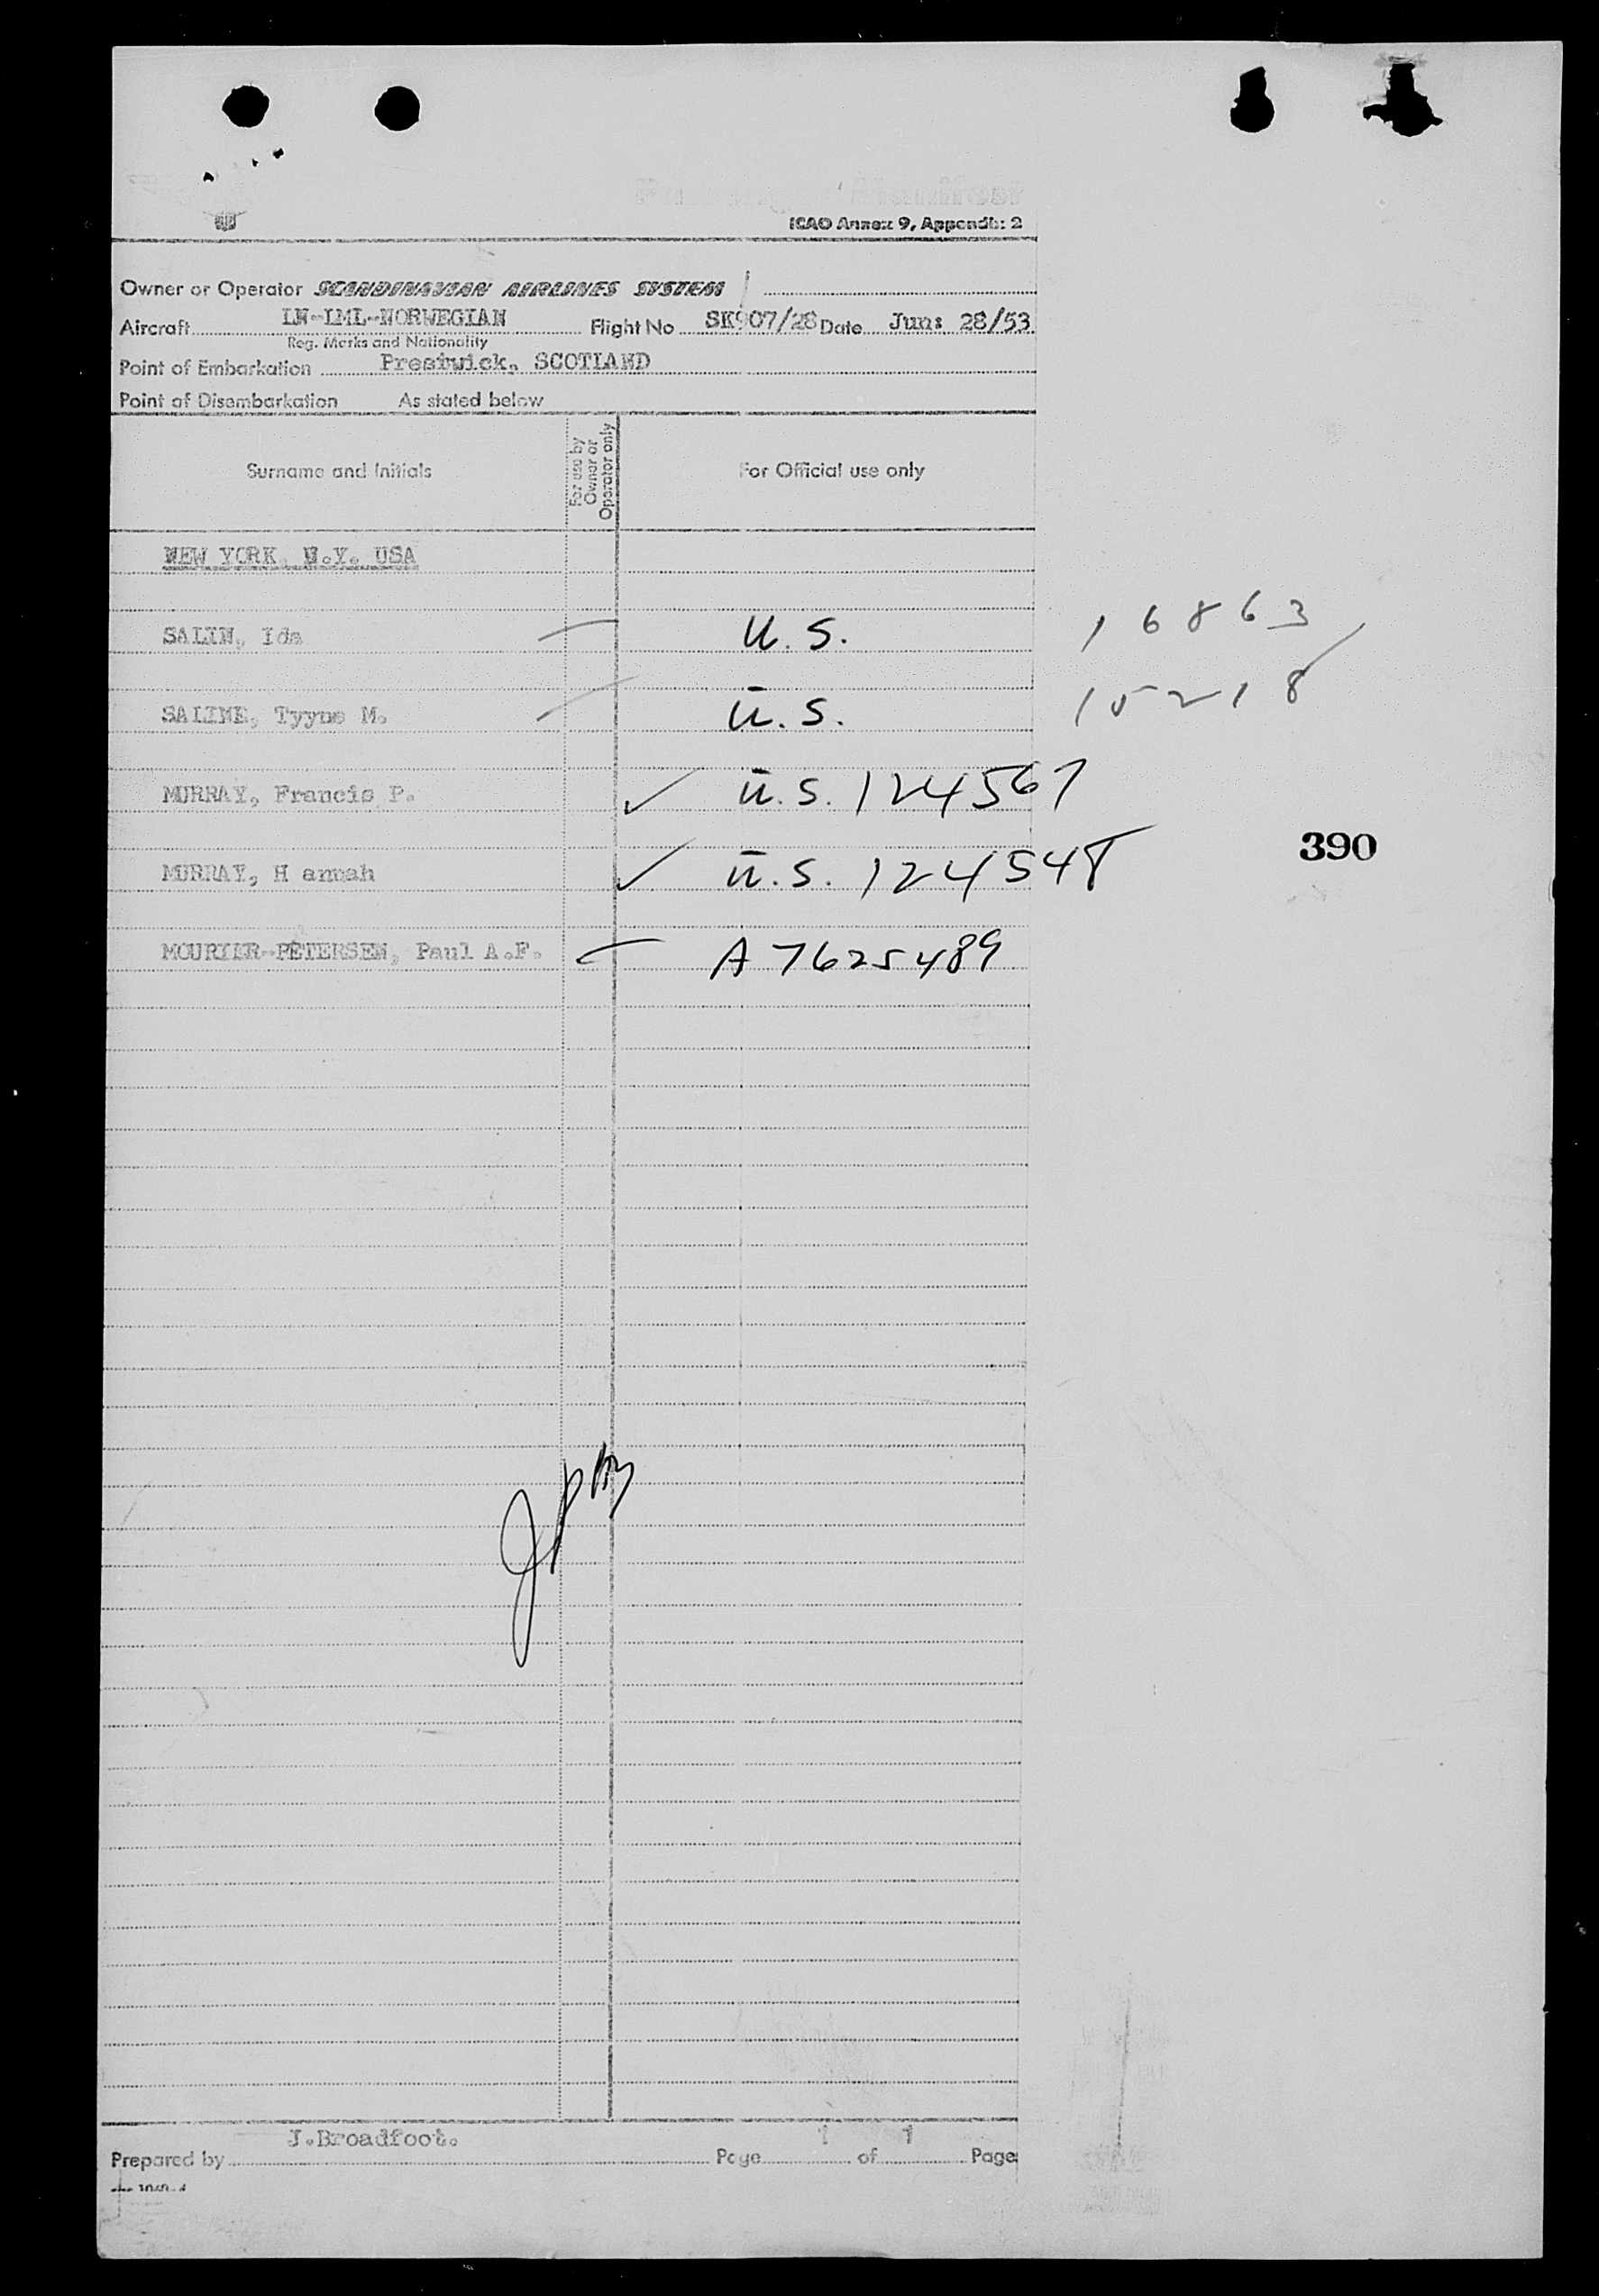 ICAO Annex 9, Appendix 2
Owner or Operator SCANDINAVIAN AIRLINES SYSTEM
Aircraft LN-LML-NORWEGIAN Flight No SK907/28 Date Jun: 28/53
Reg. Marks and Nationality
Point of Embarkation Prestwick, SCOTLAND
Point of Disembarkation As stated below
Surname and Initials For use by Owner or Operator only For Official use only
NEW YORK N.Y. USA
SALIN, Ida U.S. 16863
SALINE, Tyyne M. U.S. 15218
MURRAY, Francis P. U.S. 124567
390
MURRAY, H annah U.S. 124548
MOURIER-PETERSEN, Paul A.F. A 7625489
J.Broadfoot.
Prepared by Page 1 of 1 Page